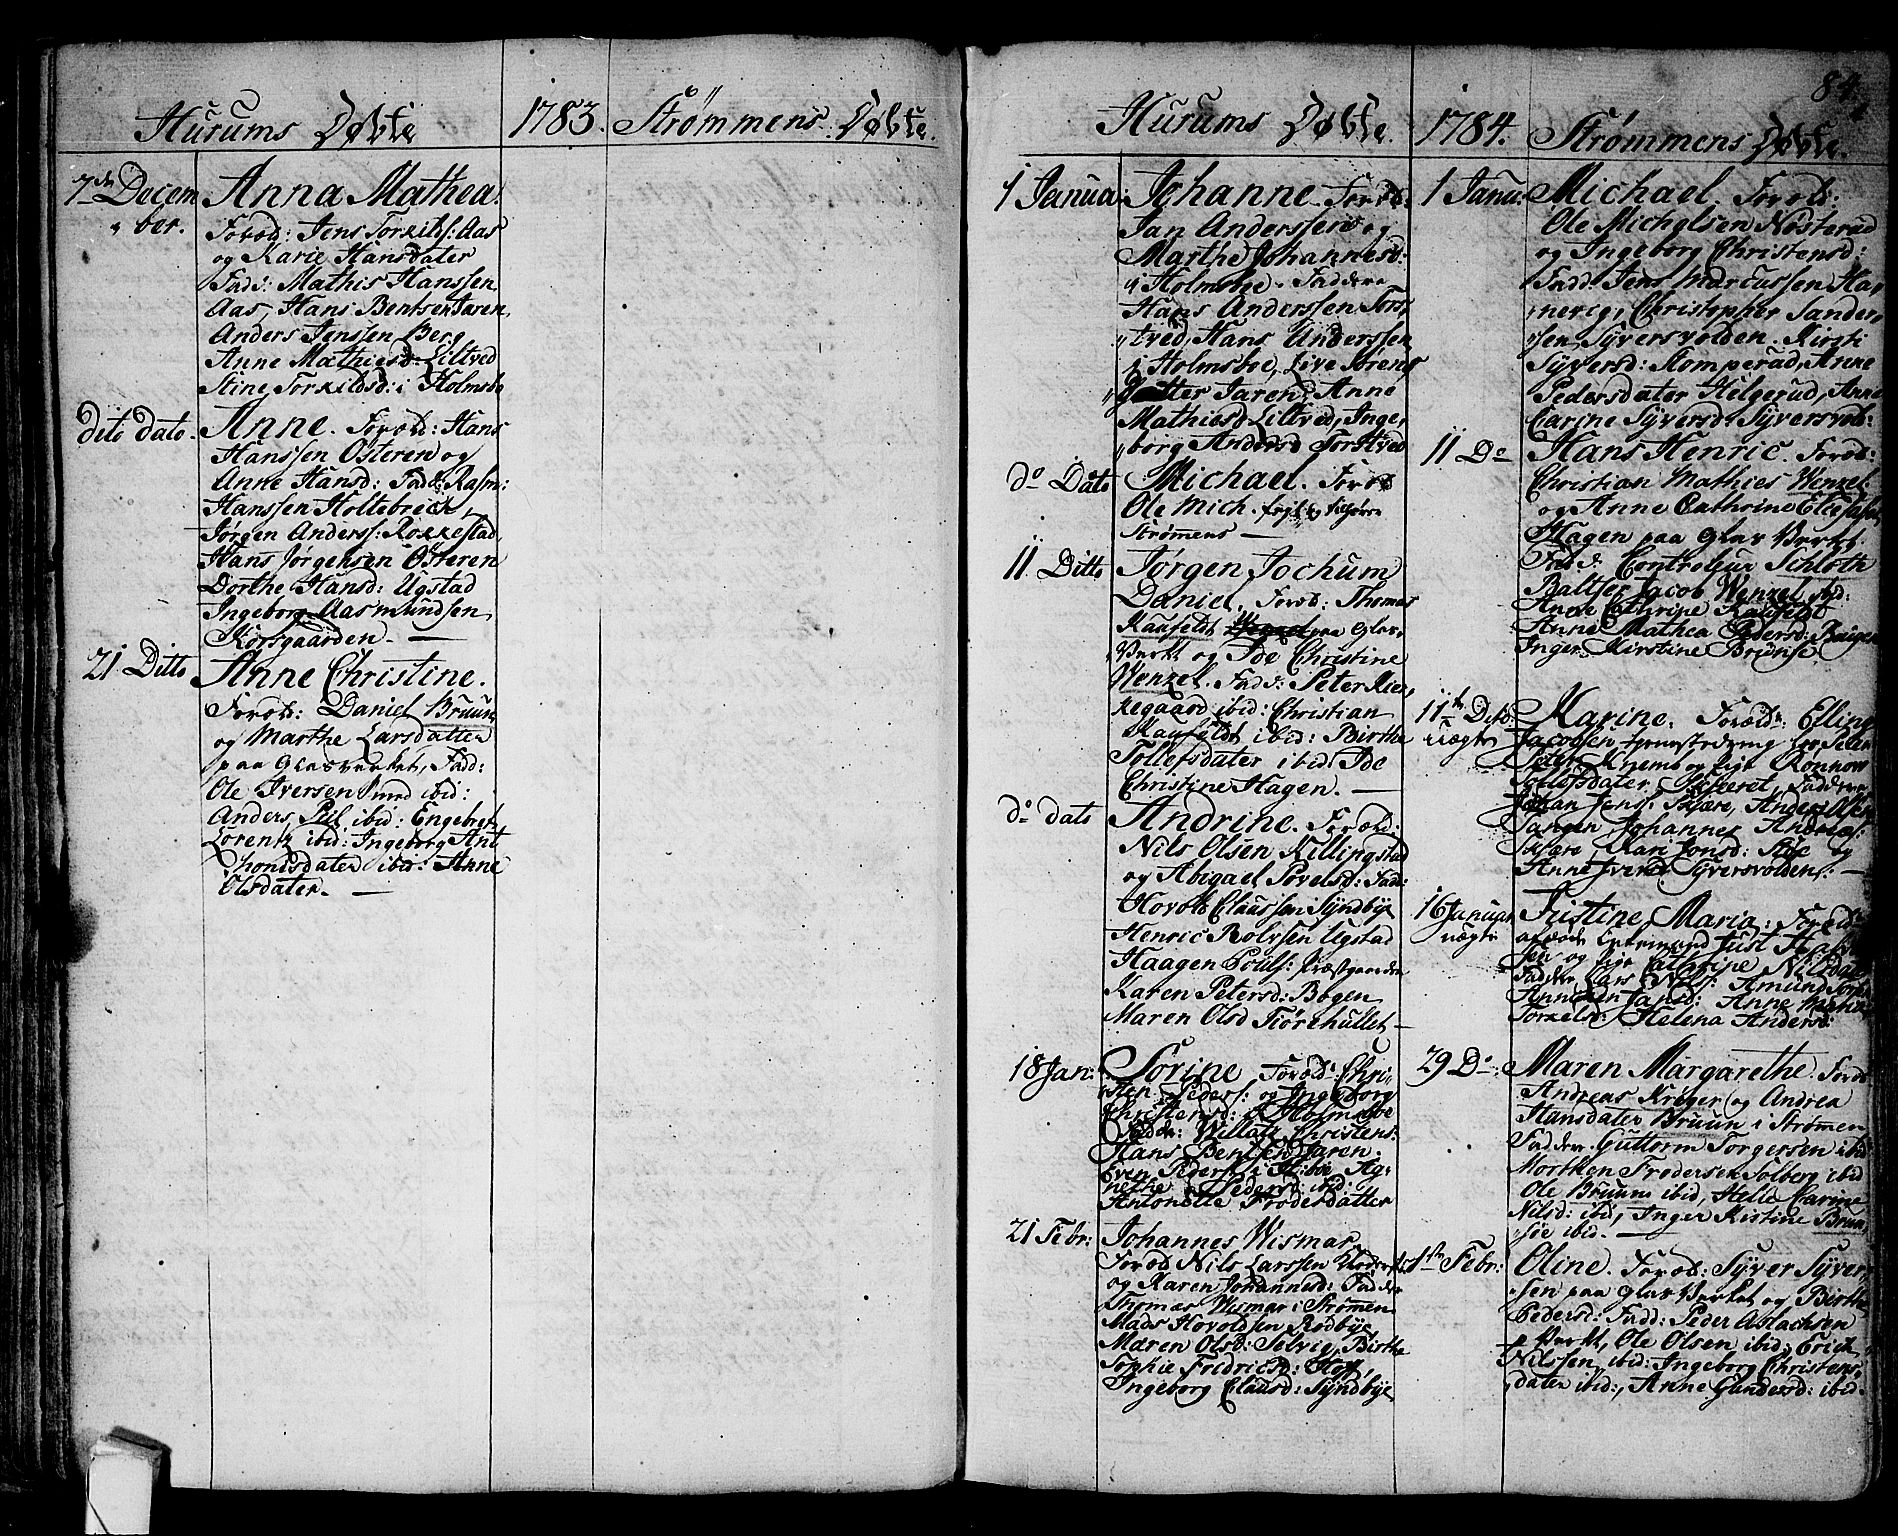 Hurums Døbte
1783.
Strømmens Døbte.
7de Decem
ber.
Anna Mathea.
Foræld: Jens Torkilds: Aas
og Karie Hansdater
Fadd: Mathis Hanssen
Aas, Hans Bentsen Jaren,
Anders Jenssen Berg
Anne Mathiesd: Liltved
Stine Torkildsd: i Holmsbo
dito dato.
Anne. Foræld: Hans
Hanssen Østeren og
Anne Hansd: Fadd: Rasm:
Hanssen Holtebrich,
Jørgen Anderss: Rokkestad,
Hans Jørgensen Østeren
Dorthe Hansd: Ugstad
Ingeborg Aasmundsen
Korsgaarden
21 Ditto
Anne Christine.
Foræld: Daniel Bruun
og Marthe Larsdatter
paa Glasverket, Fadd:
Ole Iversen Smed ibid:
Anders Piil ibid: Engebret
Lorentz ibid: Ingeborg Ant
honisdater ibid: Anne
Olsdater.
84
Hurums Døbte.
1784.
Strømmens Døbte.
1 Janua:
Johanne. Foræld:
Jan Anderssen og
Marthe Johannesd:
i Holmsboe. Faddere
Hans Anderssen Tors,
tved, Hans Anderssen
i Holmsboe, Live Sørens
datter Jaren, Anne
Mathiesd Liltved, Inge,
borg Andersd Torstved
do Dato
Michael. Foræld
Ole Mich.
Strømens
11 Ditto
Jørgen Jochum
Daniel. Foræld: Thomas
Kaufeldt paa Glas,
Verket og Ide Christine
Wenzel. Fadd: Peter Kier,
kegaard ibid: Christian
Kaufeldt ibid: Birthe
Tollefsdater ibid Ide
Christine Hagen.
do dato
Andrine. Foræld:
Nils Olsen Killingstad
og Abigael Povelsd: Fad:
Hovold Claussen Syndbye
Henric Rolvsen Ugstad
Haagen Pouls: Præstgaarden
Karen Petersd: Bogen
Maren Olsd Tiørehullet
18 Jan:
Sørine Foræld: Chri,
sten Peders: og Ingeborg
Christensd: i Holmsboe
Fadder: Willatz Christens:
Hans Bentsen Jaren.
Even Peders: i H:boe Ag,
nethe Pedersd: ibid:
Antonette Frodesdatter
21 Febr:
Johannes Wismar
Foræld Nils Larssen
og Karen Johannesd: Faddere
Thomas Wismar i Strømen
Mads Hovoldsen Rødbye
Maren Olsd: Selvig, Birthe
Sophie Fridricsd: Hoff,
Ingeborg Clausd: Syndbye
1 Janu:
Michael. Foræld:
Ole Michelsen Nøsterud
og Ingeborg Christensd:
Fadd: Jens Marcussen Ha,
nevig, Christopher Sander,
sen Syversvolden. Kirsti
Syversd: Stomperud, Anne
Pedersdater Helgerud, Anne
Carine Syversd: Syversvold:
11 Do
Hans Henric. Foræld:
Christian Mathies Wenzel
og Anne Cathrine Elisabet
Hagen paa Glas Verket.
Fadd: Controleur Schloth
Baltser Jacob Wenzel ibid:
Anne Cathrine Kaufeldt
Anne Mathea Pedersd:
Inger Kirstine Brunse
11te Dito
uægte
Karine. Foræld: Elling
Jacobsen
Tollefsdater Skiæret, Faddere
Johan Jens: Skjære, Anders Olsen
Tangen Johannes Andreas:
Skjære Kari Jonsd:
Anne Iversd Syversvolden.
16 Januar
uægte
Justine Maria. Foræld:
sen og Cathrine Nilsdater
Fadder Lars Nils: Amund
Anneken Jansd: Anne Maria
Torkelsd: Helena Andersd:
29 Do:
Maren Margarethe. Foræld
Andreas Krøger og Andrea
Hansdater Bruun i Strømen
Fadder. Guttorm Torgersen ibid
Morthen Fredersen Solberg ibid
Ole Bruun ibid, Helle Carine
Nilsd: ibid, Inger Kistine Brun
søe ibid.
1ste Febr:
Oline. Foræld: Syver Syver,
sen paa Glas Verket og Birthe
Pedersd: Fadd: Peder Aslachsen
Verket, Ole Olsen ibid: Erich
Nilssen ibid: Ingeborg Christens,
dater ibid:, Anne Gundersd: ibid.